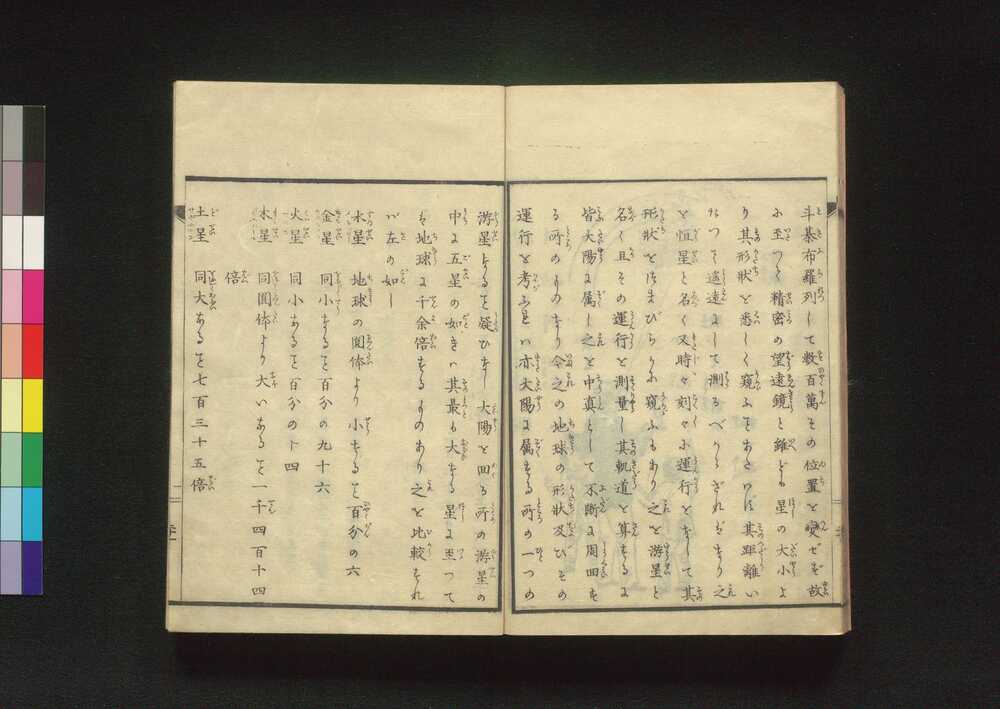 斗棊布羅列して数百萬その位置を變ぜず故
に至つて精密の望遠鏡と雖ども星の大小よ
り其形状を悉しく窺ふことあたはず其距離い
たつて遙遠にして測るべからざればなり之
を恒星と名く又時々刻々に運行をなして其
形状をつまびらかに窺ふもあり之を游星と
名く且その運行を測量し其軌道を算するに
皆大陽に属し之を中真として不断に周回す
る所のものなり今之の地球の形状及びその
運行を考ふれバ亦大陽に属する所の一つの
游星なるを疑ひなし大陽を回る所の游星の
中に五星の如きハ其最も大なる星に至つて
は地球に千余倍するものあり之を比較すれ
バ左の如し
水星 地球の圓体より小なるを百分の六
金星 同小なるを百分の九十六
火星 同小なるを百分の十四
木星 同圓体より大いなるを一千四百十四
倍
土星 同大なるを七百三十五倍